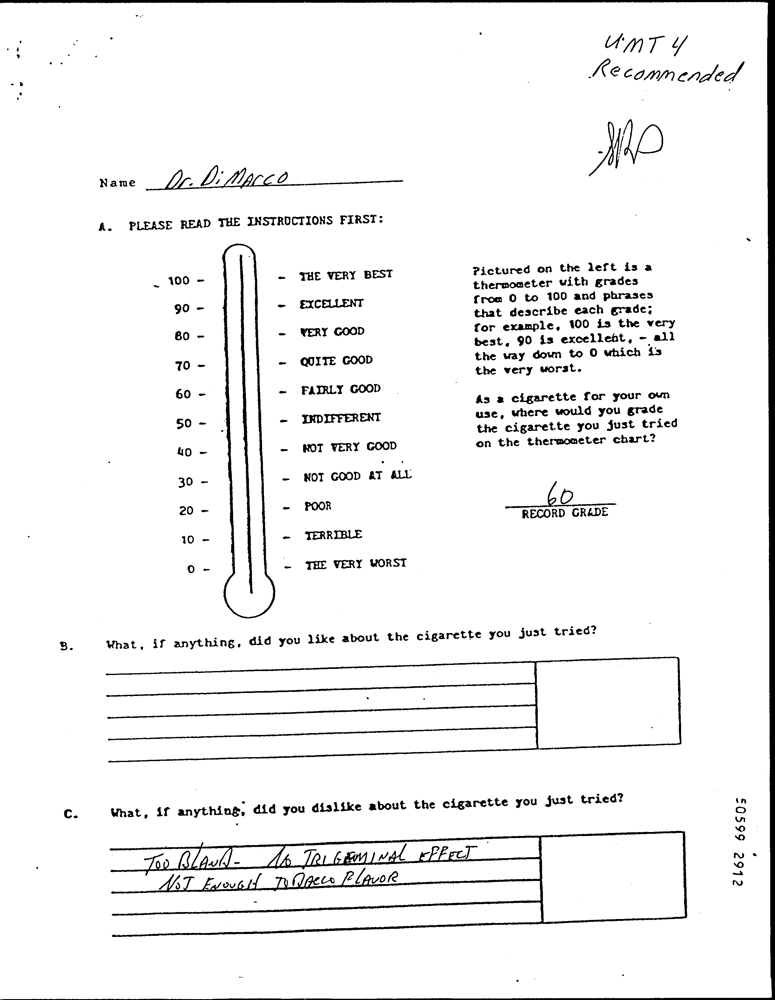 UMT 4
Recommended
Name Dr. DiMarco
A. PLEASE READ THE INSTRUCTIONS FIRST:
100 - - THE VERY BEST
90 - - EXCELLENT
80 - - VERY GOOD
70 - - QUITE GOOD
60 - - FAIRLY GOOD
50 - - INDIFFERENT
40 - - NOT VERY GOOD
30 - - NOT GOOD AT ALL
20 - - POOR
10 - - TERRIBLE
0 - - THE VERY WORST
Pictured on the left is a
thermometer with grades
from 0 to 100 and phrases
that describe each grade;
for example, 100 is the very
best, 90 is excellent, - all
the way down to 0 which is
the very worst.
As a cigarette for your own
use, where would you grade
the cigarette you just tried
on the thermometer chart?
60
RECORD GRADE
B. What, if anything, did you like about the cigarette you just tried?
C. What, if anything, did you dislike about the cigarette you just tried?
TOO BLAND- NO TRIGEMINAL EFFECT
NOT ENOUGH TOBACCO FLAVOR
50599 2912